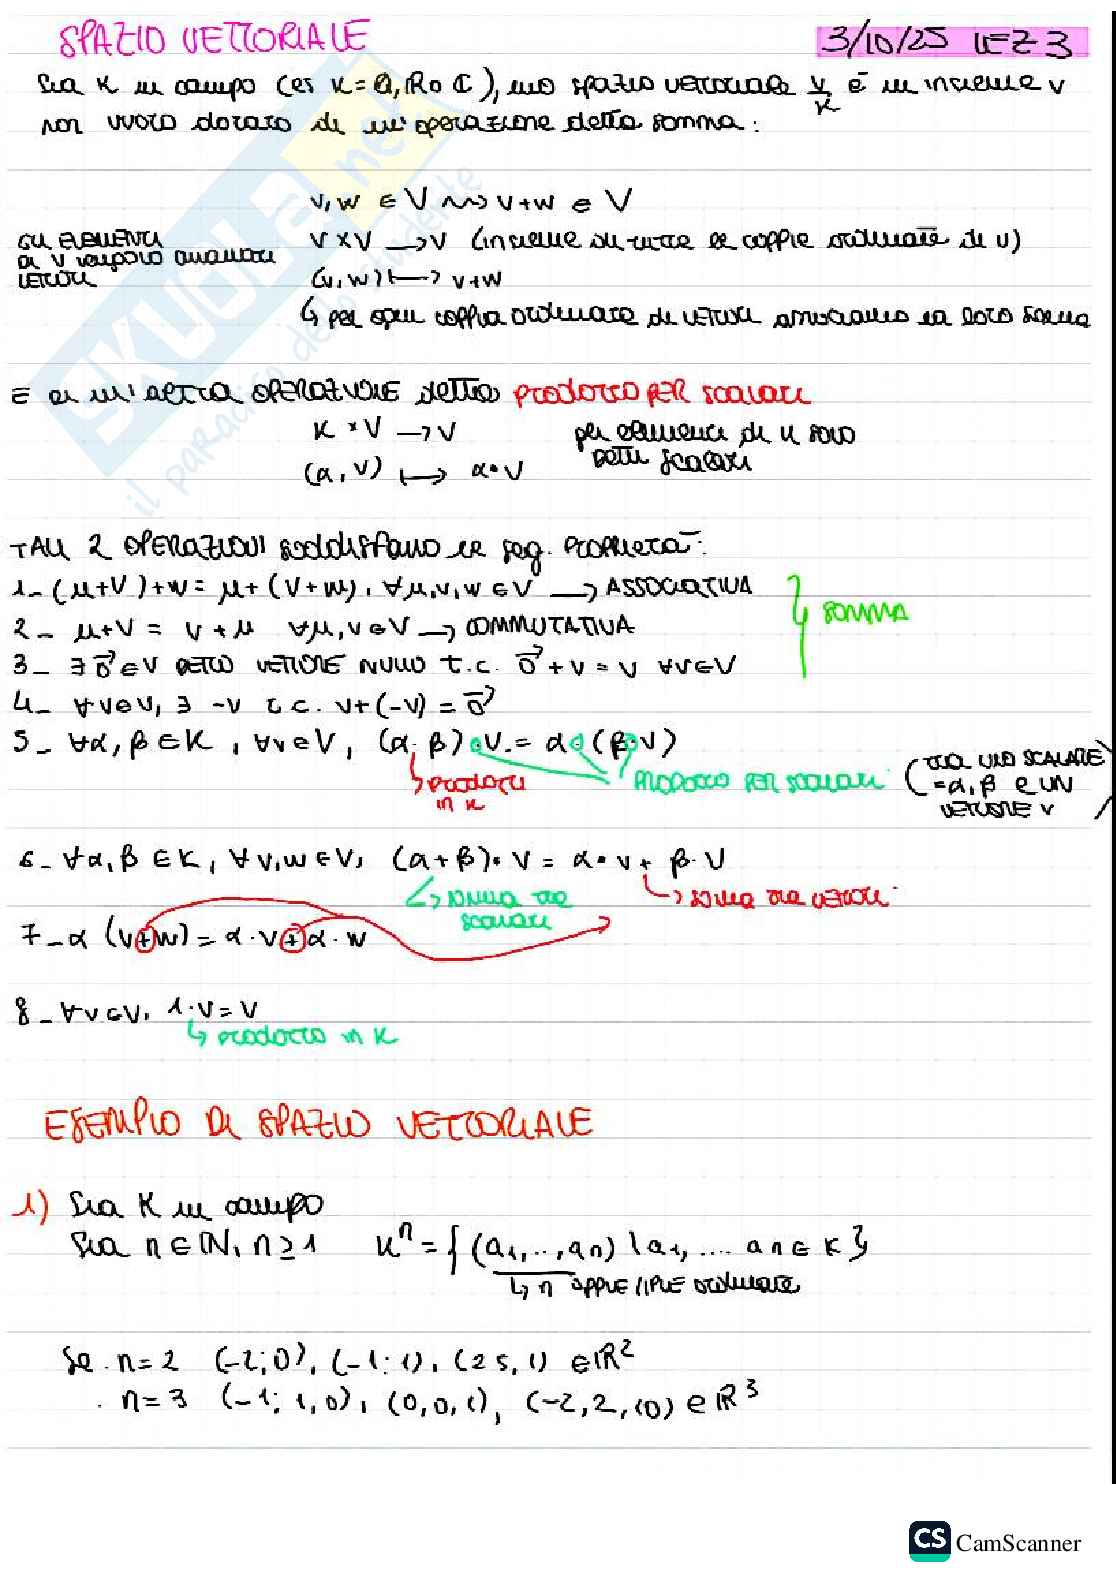 SPAZIO VETTORIALE
3/10/25 LEZ 3
Sia K un campo (es K = Q, R o C), uno spazio vettoriale V/K è un insieme V
non vuoto dotato di un'operazione detta somma:
v, w ∈ V ⇝ v+w ∈ V
GLI ELEMENTI
DI V vengono chiamati
VETTORI
V × V → V (insieme di tutte le coppie ordinate di V)
(v, w) ↦ v+w
↳ per ogni coppia ordinata di vettori associamo la loro somma
E di un'altra OPERAZIONE detta PRODOTTO PER SCALARI
K × V → V
(α, V) ↦ α·V
gli elementi di K sono
detti scalari
TALI 2 OPERAZIONI soddisfano le seg. proprietà:
1- (μ+V)+w = μ+(V+w), ∀μ,v,w ∈ V → ASSOCIATIVA
2- μ+V = V+μ ∀μ,v∈V → COMMUTATIVA
SOMMA
3- ∃ 0⃗ ∈ V DETTO VETTORE NULLO t.c. 0⃗ + v = v ∀v∈V
4- ∀v∈V, ∃ -v t.c. v+(-v) = 0⃗
5- ∀α, β ∈ K, ∀v∈V, (α·β)·V = α·(β·V)
↳ prodotto
in K
PRODOTTO PER SCALARI
(TRA UNO SCALARE
= α, β e UN
VETTORE v)
6- ∀α, β ∈ K, ∀v,w ∈ V, (α+β)·V = α·v + β·V
↳ somma tra
scalari
↳ somma tra vettori
7- α (v+w) = α·v + α·w
8- ∀v∈V, 1·V = V
↳ prodotto in K
ESEMPIO DI SPAZIO VETTORIALE
1) Sia K un campo
Sia n ∈ N, n ≥ 1 Kⁿ = {(a₁,..,aₙ) | a₁,.... aₙ ∈ K}
↳ n ordinate
Se · n=2 (-2;0), (-1;1), (25,1) ∈ R²
· n=3 (-1; 1,0), (0,0,1), (-2,2,10) ∈ R³
SKUOLA.net
il paradiso dello studente
CS CamScanner